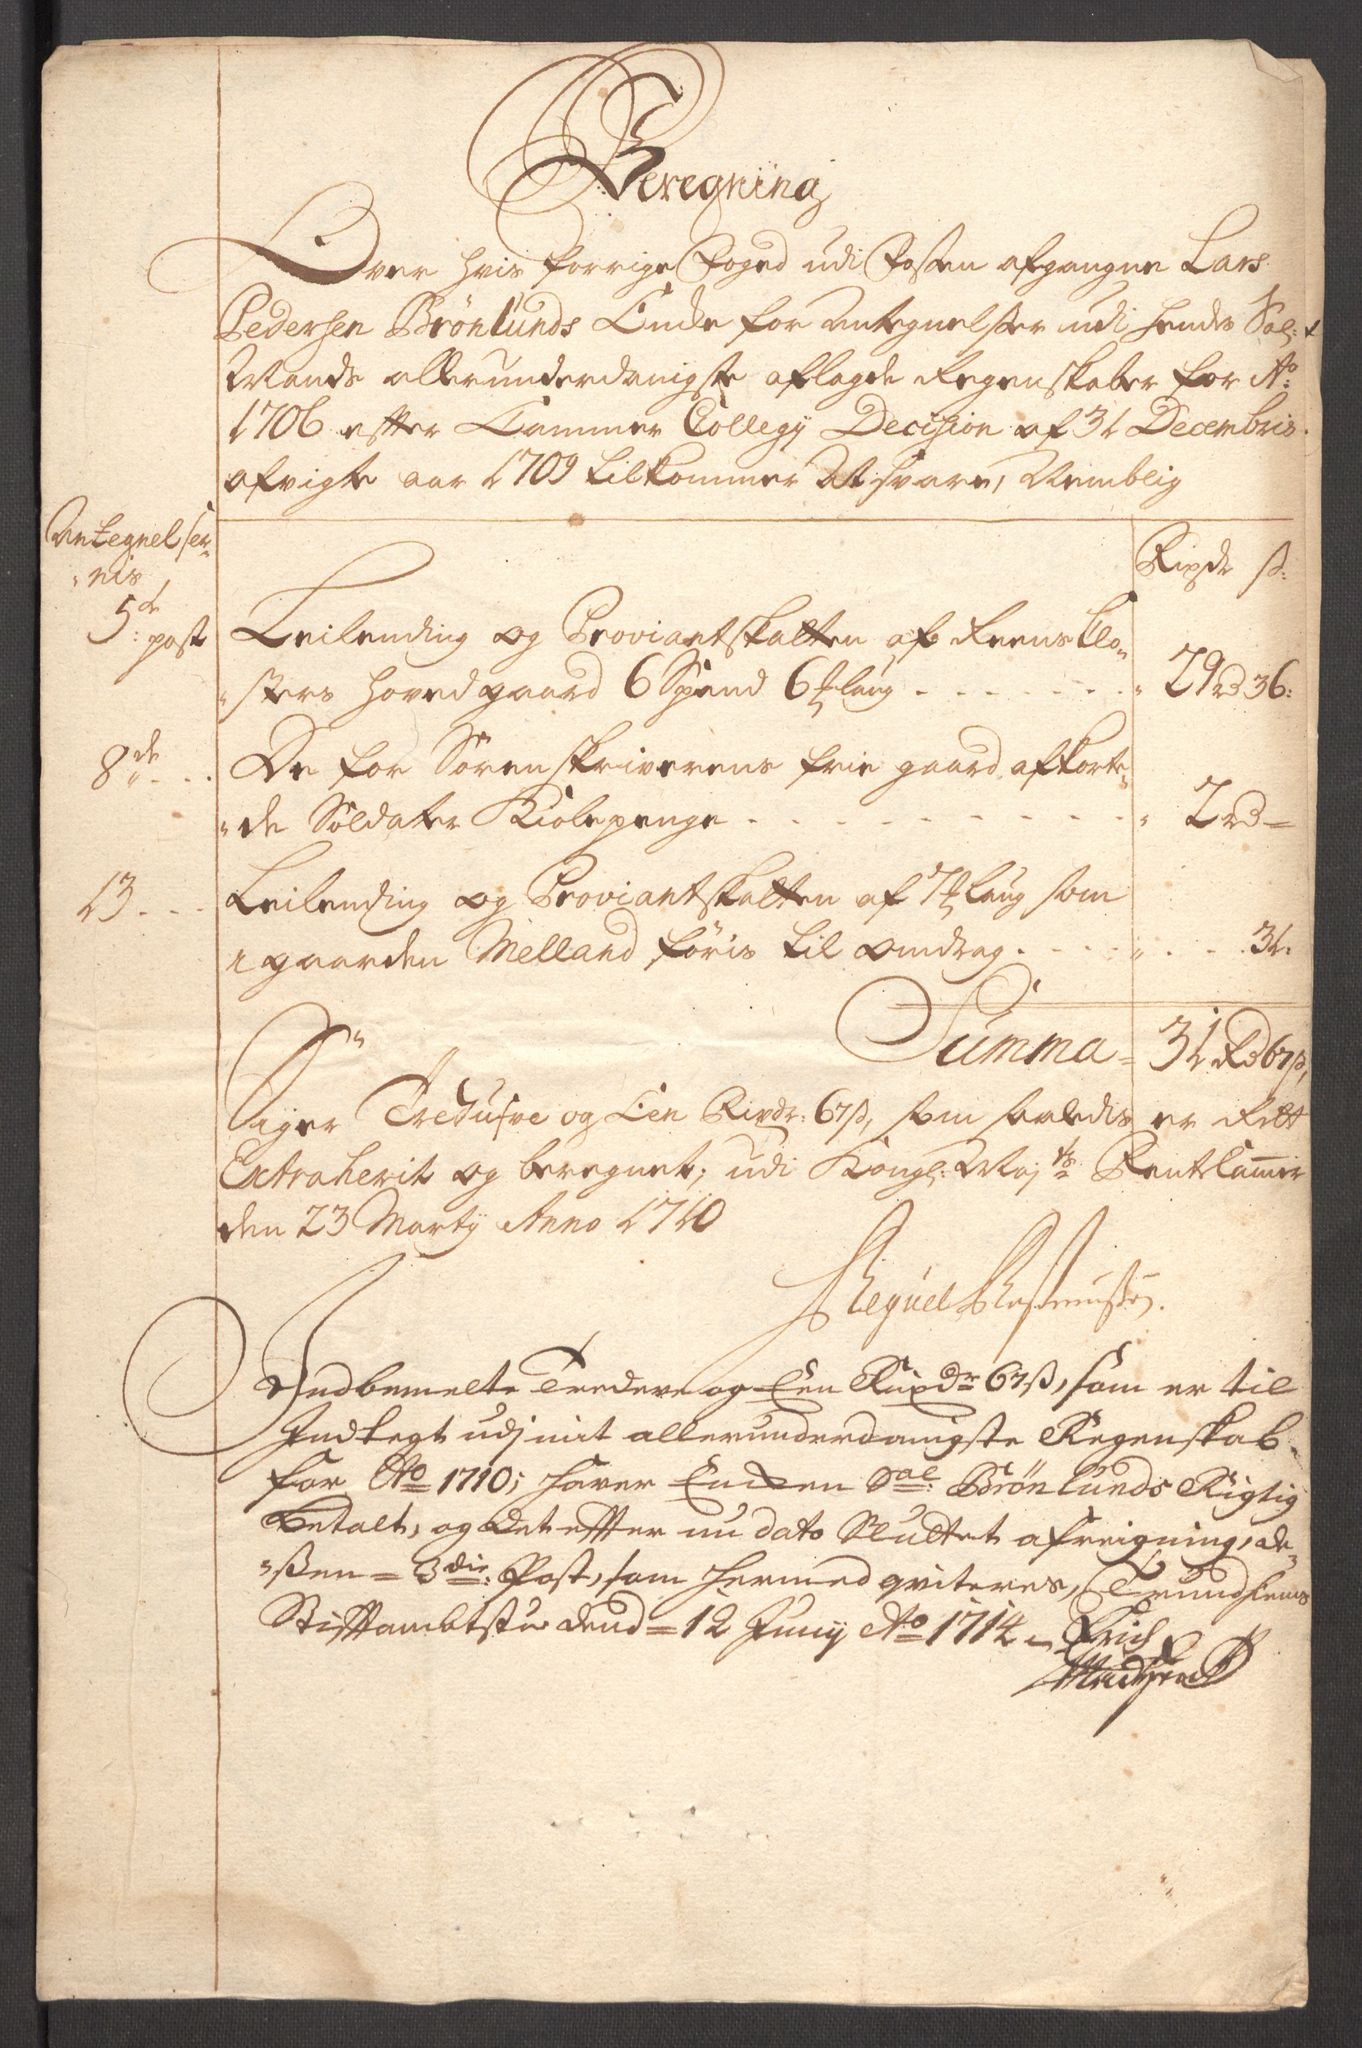 Beregning
Over hvis forrige Foged udi Fosen afgangne Lars
Pedersen Brönlunds Encke for Antegnelser udi hendes Sal:
Mands allerunderdanigste aflagde Regenskaber for Ao:
1706 effter Cammer Collegÿ Decision af 31 Decembris
afvigte aar 1709 tilkommer At svare, Nemblig
Antegnelser-
"nis
Rixdr ß:
5te: post Leilending og Proviantskatten af Reens Klo-
"sters hovedgaard 6 Spand 6 laug - - - " 29 rd 36:
8de - - De for Sörenskriverens frie gaard afkorte-
"de Soldater Kiolepenge - - - " 2 rd -
13 - - Leilending og Proviantskatten af 7 laug som
i gaarden Melland föris til omdrag - - - " - - 31:
Summa = 31 Rd 67 ß,
Siger Tredusve og Een Rixdr: 67 ß, som saaledis er Rett
Extraherit og beregnet, udi Kongl: Maj:ts RenteCammer
den 23 Martÿ Anno 1710
Rasmussen.
Indbemelte Tredeve og Een Rixdr 67 ß, som er til
Indtegt udj mit allerunderdanigste Regenskab
for Ao 1710; hafver Encken Sal: Brönlunds Rigtig
Betalt, og det effter nu dato Sluttet afreigning, de-
"ßen = 3die: Post, som hermed qviteres, Trundhiems
Stifftambtstue dend = 12 Junÿ Ao 1714 Erich
Madsen